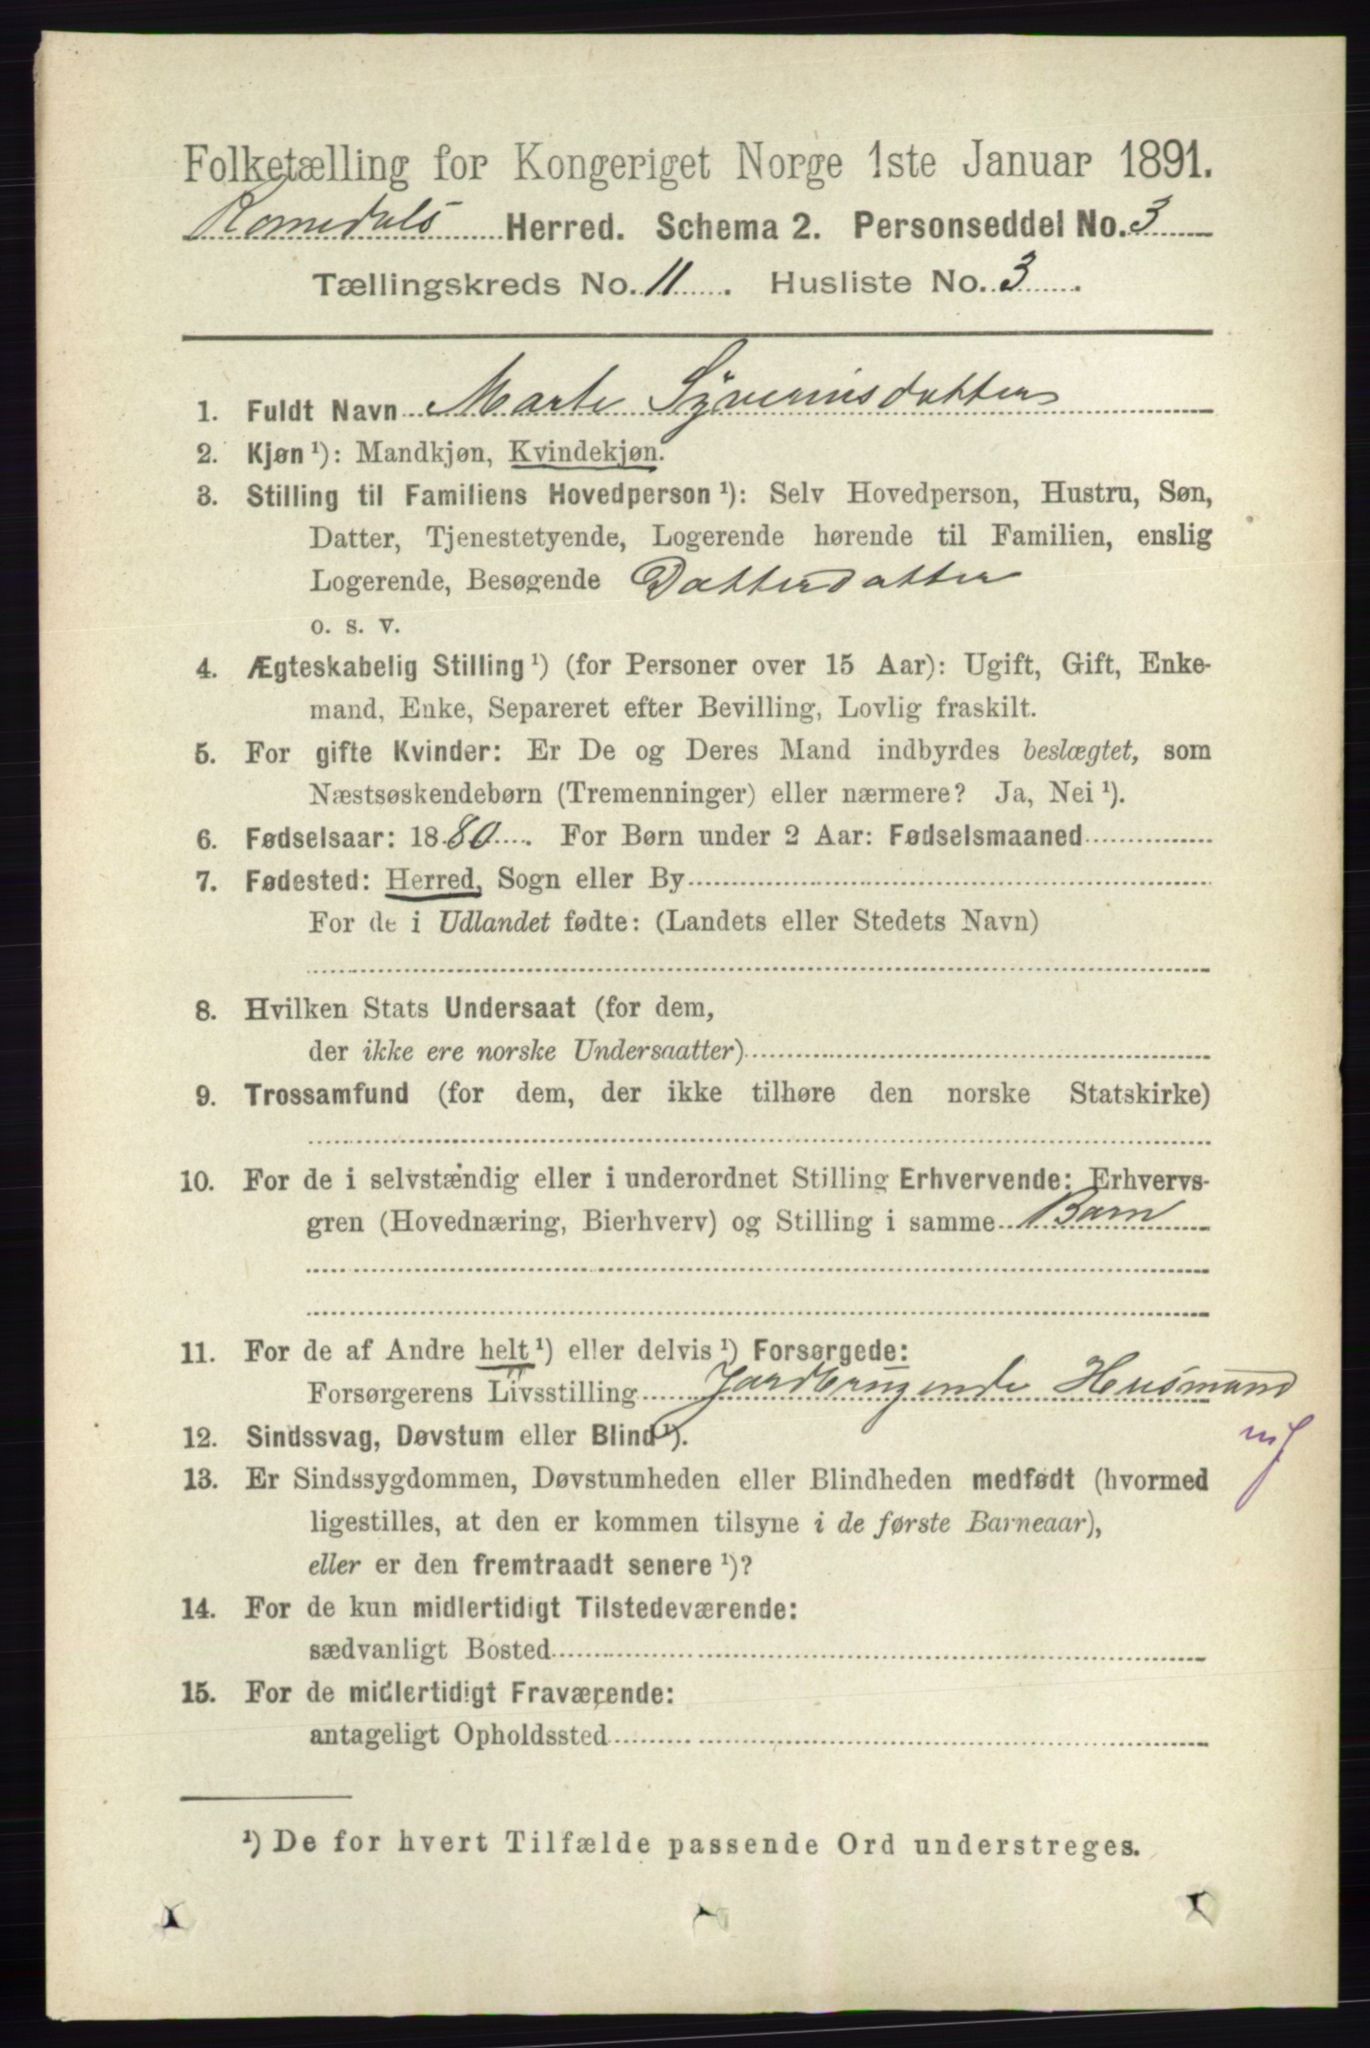 Folketælling for Kongeriget Norge 1ste Januar 1891.
Romedals Herred. Schema 2. Personseddel No. 3
Tællingskreds No. 11 . Husliste No. 3 .
1. Fuldt Navn Marte Syverinsdatter
2. Kjøn ¹): Mandkjøn, Kvindekjøn.
3. Stilling til Familiens Hovedperson ¹): Selv Hovedperson, Hustru, Søn,
Datter, Tjenestetyende, Logerende hørende til Familien, enslig
Logerende, Besøgende Datterdatter
o. s. v.
4. Ægteskabelig Stilling ¹) (for Personer over 15 Aar): Ugift, Gift, Enke-
mand, Enke, Separeret efter Bevilling, Lovlig fraskilt.
5. For gifte Kvinder: Er De og Deres Mand indbyrdes beslægtet, som
Næstsøskendebørn (Tremenninger) eller nærmere? Ja, Nei ¹).
6. Fødselsaar: 1880. For Børn under 2 Aar: Fødselsmaaned
7. Fødested: Herred, Sogn eller By
For de i Udlandet fødte: (Landets eller Stedets Navn)
8. Hvilken Stats Undersaat (for dem,
der ikke ere norske Undersaatter)
9. Trossamfund (for dem, der ikke tilhøre den norske Statskirke)
10. For de i selvstændig eller i underordnet Stilling Erhvervende: Erhvervs-
gren (Hovednæring, Bierhverv) og Stilling i samme Barn
11. For de af Andre helt ¹) eller delvis ¹) Forsørgede:
Forsørgerens Livsstilling Jordbrugende Husmand
12. Sindssvag, Døvstum eller Blind ¹).
13. Er Sindssygdommen, Døvstumheden eller Blindheden medfødt (hvormed
ligestilles, at den er kommen tilsyne i de første Barneaar),
eller er den fremtraadt senere ¹)?
14. For de kun midlertidigt Tilstedeværende:
sædvanligt Bosted
15. For de midlertidigt Fraværende:
antageligt Opholdssted
¹) De for hvert Tilfælde passende Ord understreges.